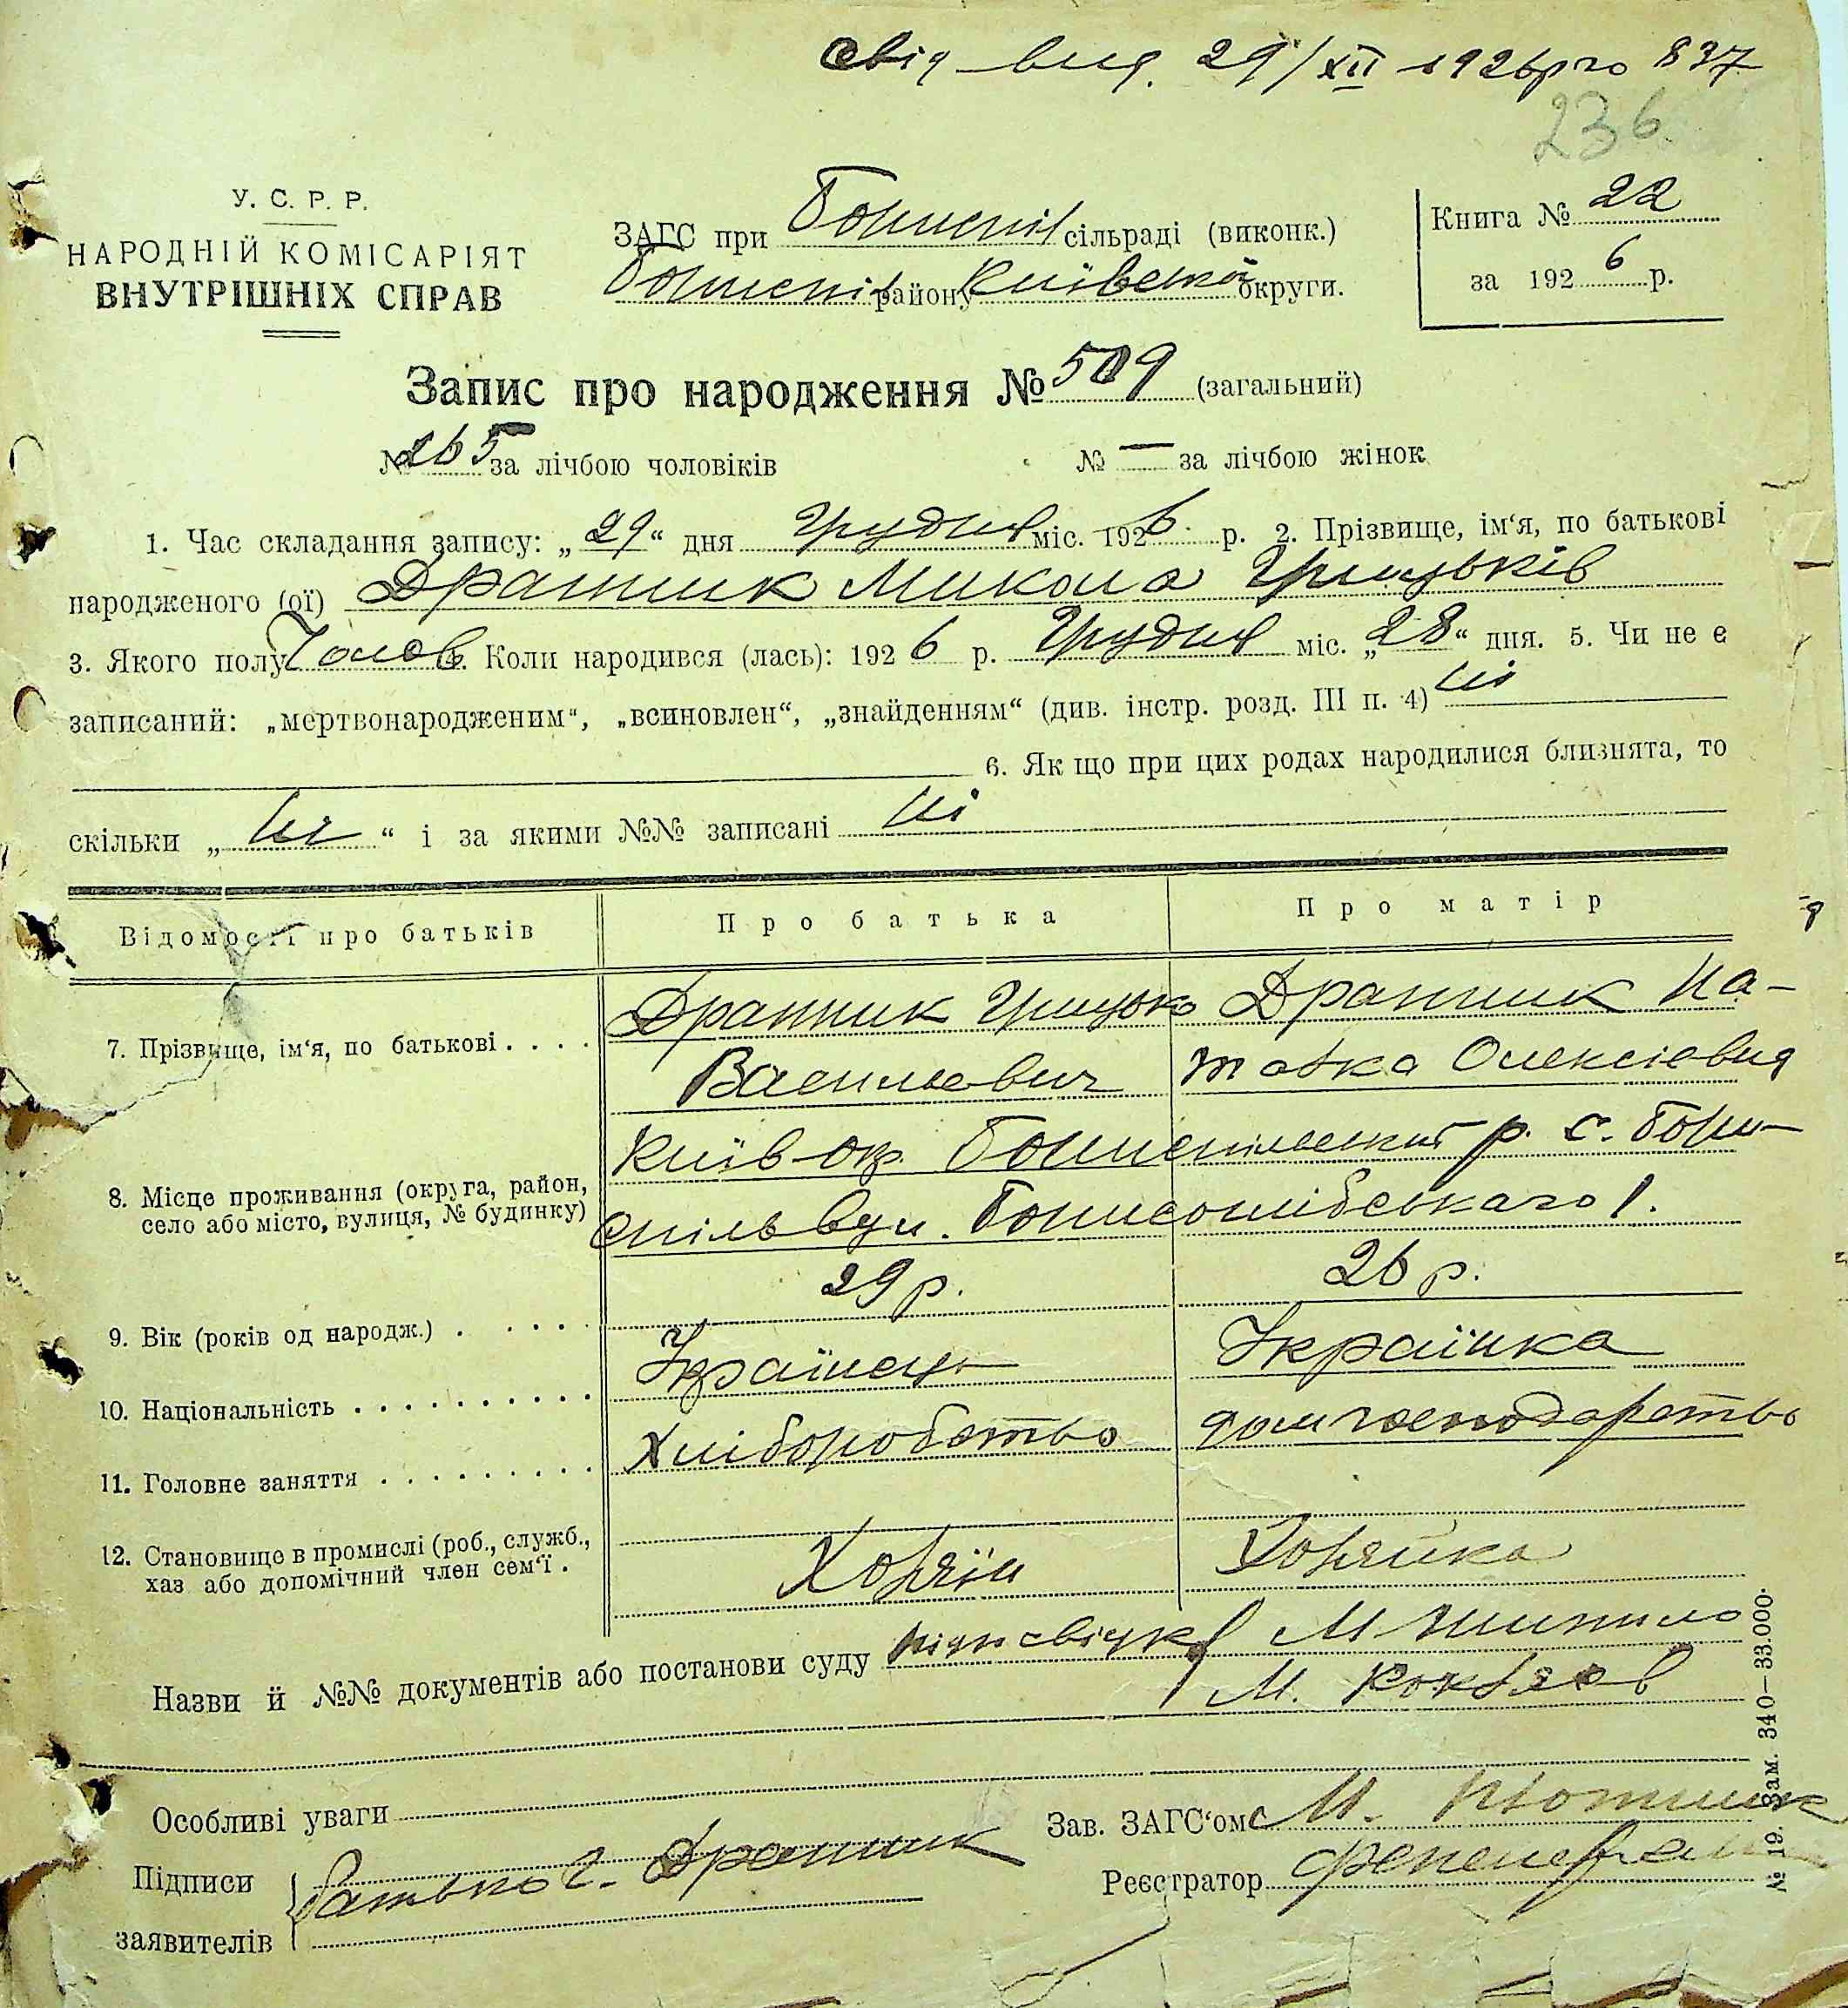 Свід вид. 29/XII 1926р го 837
236
У. С. Р. Р.
НАРОДНІЙ КОМІСАРІЯТ
ВНУТРІШНІХ СПРАВ
ЗАГС при Бориспіл сільраді (виконк.)
Бориспіл району Київської округи.
Книга № 22
за 1926 р.
Запис про народження № 509 (загальний)
№ 265 за лічбою чоловіків № — за лічбою жінок
1. Час складання запису: „29“ дня Грудня міс. 1926 р. 2. Прізвище, ім'я, по батькові
народженого (ої) Драпник Микола Грицьків
3. Якого полу Чолов. Коли народився (лась): 1926 р. Грудня міс. „28“ дня. 5. Чи не є
записаний: „мертвонародженим“, „всиновлен“, „знайденням“ (див. інстр. розд. III п. 4) ні
6. Як що при цих родах народилися близнята, то
скільки „ні“ і за якими №№ записані ні
Відомості про батьків Про батька Про матір
7. Прізвище, ім'я, по батькові . . . . Драпник Грицько Драпник На-
Васильович талка Олексієвна
Київ ок. Бориспільский р. с. Бори-
8. Місце проживання (округа, район,
село або місто, вулиця, № будинку) спіль вул. 1.
9. Вік (років од народж.) . . . . . 29 р. 26 р.
10. Національність . . . . . . . . . . Українець Українка
11. Головне заняття . . . . . . . . . Хліборобство дом господарство
12. Становище в промислі (роб., служб.,
хаз або допомічний член сем'ї . Хозяїн Хозяйка
Назви й №№ документів або постанови суду М Шипило
М.
Особливі уваги
Зав. ЗАГС'ом М.
Підписи Батько Г. Драпник
Реєстратор
заявителів
№ 19. Зам. 340—33.000.